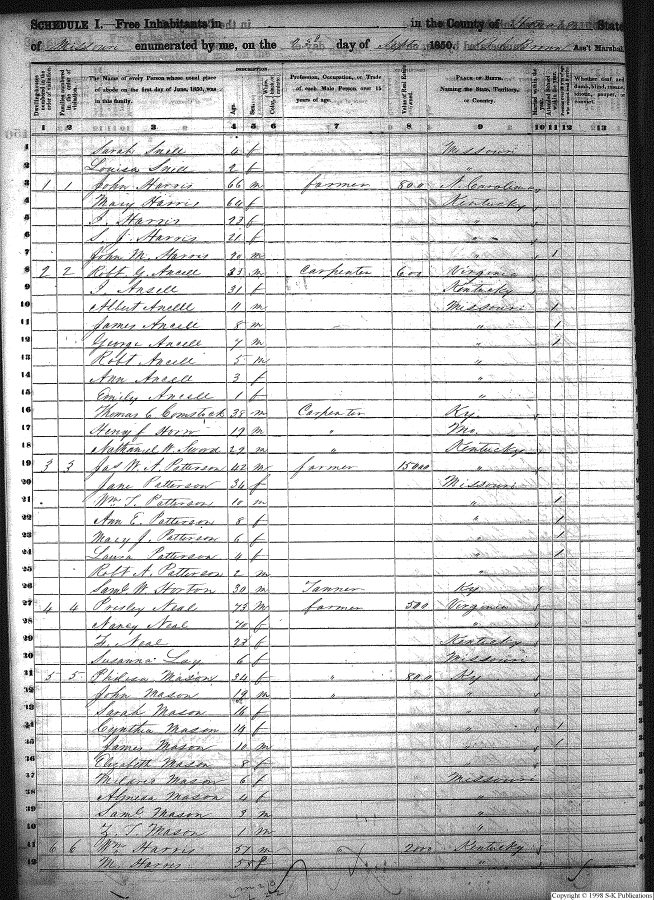 SCHEDULE I.—Free Inhabitants in in the County of State
of Missouri enumerated by me, on the 23d day of Septr 1850. Ass't Marshal.
Dwelling-houses numbered in the order of visitation.
Families numbered in the order of visitation.
The Name of every Person whose usual place of abode on the first day of June, 1850, was in this family.
DESCRIPTION.
Age.
Sex.
Color,
Profession, Occupation, or Trade of each Male Person over 15 years of age.
Value of Real Estate owned.
PLACE OF BIRTH.
Naming the State, Territory, or Country.
Married within the year.
Whether deaf and dumb, blind, insane, idiotic, pauper, or convict.
1 2 3 4 5 6 7 8 9 10 11 12 13
1 Sarah Snell 4 f Missouri
2 Louisa Snell 2 f "
3 1 1 John Harris 66 m farmer 800 N. Carolina
4 Mary Harris 64 f Kentucky
5 Harris 23 f "
6 S. J. Harris 21 f "
7 John M. Harris 20 m " 1
8 2 2 Robt Y. Ancell 33 m Carpenter 600 Virginia
9 Ansell 31 f Kentucky
10 Albert Ancell 11 m Missouri 1
11 James Ancell 8 m " 1
12 George Ancell 7 m " 1
13 Robt Ancell 5 m "
14 Ann Ancell 3 f "
15 Emily Ancell 1 f "
16 Thomas C Comstock 38 m Carpenter Ky.
17 Henry J. 19 m " Mo.
18 Nathaniel W. Sword 22 m " Kentucky
19 3 3 Jas W. A. Patterson 42 m farmer 15000 "
20 Jane Patterson 34 f Missouri
21 Wm T. Patterson 10 m " 1
22 Ann E. Patterson 8 f " 1
23 Mary J. Patterson 6 f " 1
24 Laura Patterson 4 f " 1
25 Robt A. Patterson 2 m "
26 Saml W. Horton 30 m Tanner Ky.
27 4 4 Presley Neal 73 M farmer 500 Virginia
28 Nancy Neal 70 f "
29 Neal 23 f Kentucky
30 Susanna Lay 6 f Missouri
31 5 5 Mason 34 f " 800 Ky
32 John Mason 19 m " "
33 Sarah Mason 16 f "
34 Cynthia Mason 14 f " 1
35 James Mason 10 m " 1
36 Elizabeth Mason 8 f "
37 Mason 6 f Missouri
38 Mason 4 f "
39 Saml Mason 3 m "
40 T. Mason 1 m "
41 6 6 Wm Harris 57 m 2000 Kentucky
42 M. Harris 58 f "
Copyright © 1998 S-K Publications